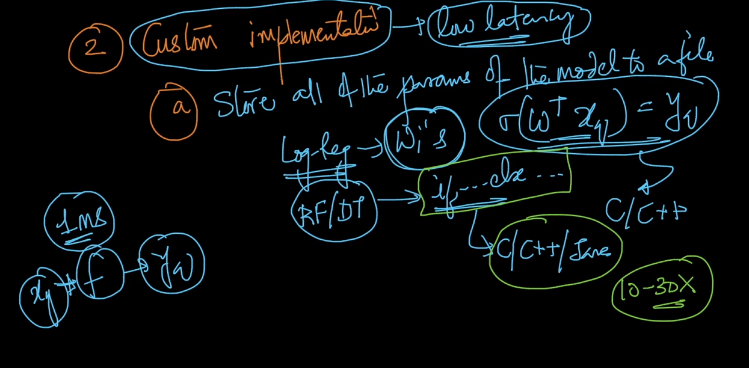 2 Custom implementation → low latency
a Store all of the params of the model to a file
Log-Reg → Wi's σ(ωᵀ xq) = yq
RF/DT → if ... else ... C/C++
1ms C/C++/Java
xq → f → yq 10-30X